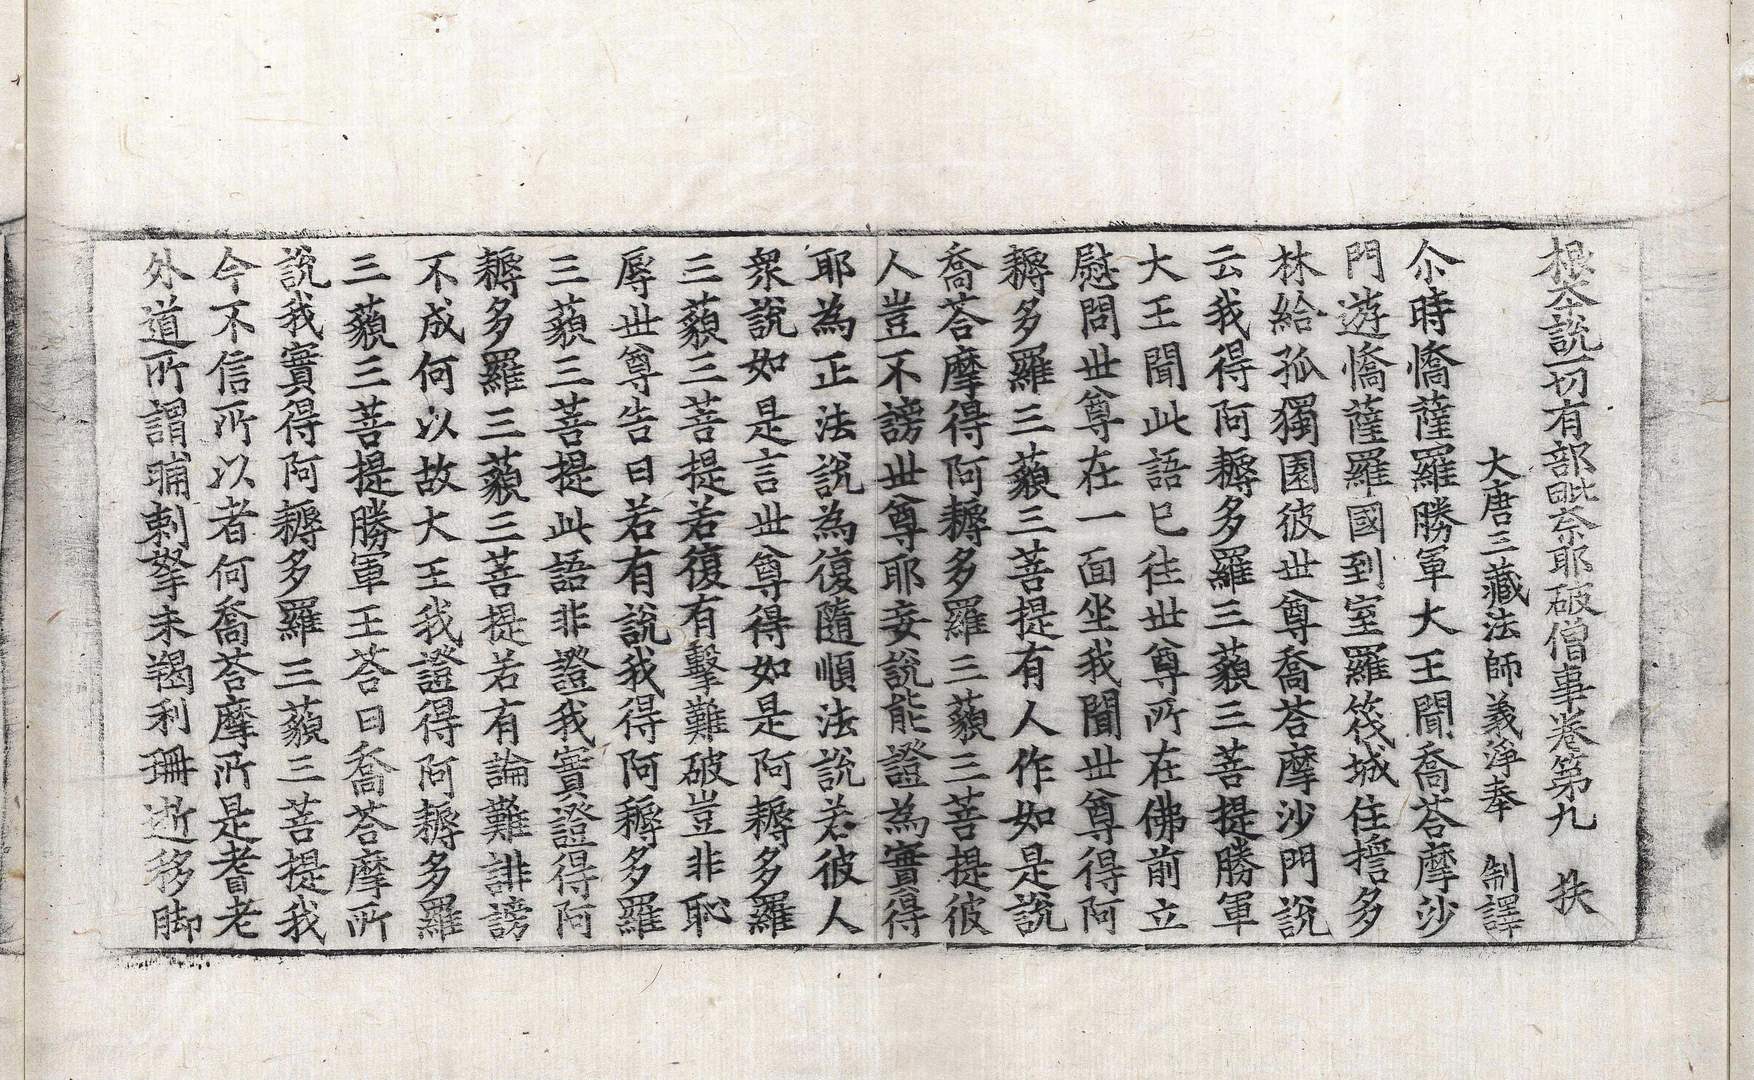 根夲說一切有部毗奈耶破僧事卷第九 扶
大唐三藏法師義淨奉 制譯
尒時憍薩羅勝軍大王聞喬荅摩沙
門遊憍薩羅國到室羅筏城住誓多
林給孤獨園彼世尊喬荅摩沙門說
云我得阿耨多羅三藐三菩提勝軍
大王聞此語已往世尊所在佛前立
慰問世尊在一面坐我聞世尊得阿
耨多羅三藐三菩提有人作如是說
喬荅摩得阿耨多羅三藐三菩提彼
人豈不謗世尊耶妄說能證為實得
耶為正法說為復隨順法說若彼人
衆說如是言世尊得如是阿耨多羅
三藐三菩提若復有擊難破豈非恥
辱世尊告曰若有說我得阿耨多羅
三藐三菩提此語非證我實證得阿
耨多羅三藐三菩提若有論難誹謗
不成何以故大王我證得阿耨多羅
三藐三菩提勝軍王荅曰喬荅摩所
說我實得阿耨多羅三藐三菩提我
今不信所以者何喬荅摩所是耆老
外道所謂晡剌拏末羯利珊逝移脚